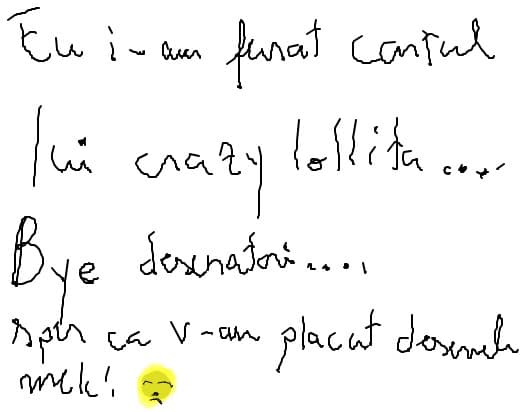 Eu i-am furat contul
lui crazy lollita....
Bye desenatori....
sper ca v-au placut desenele
mele!